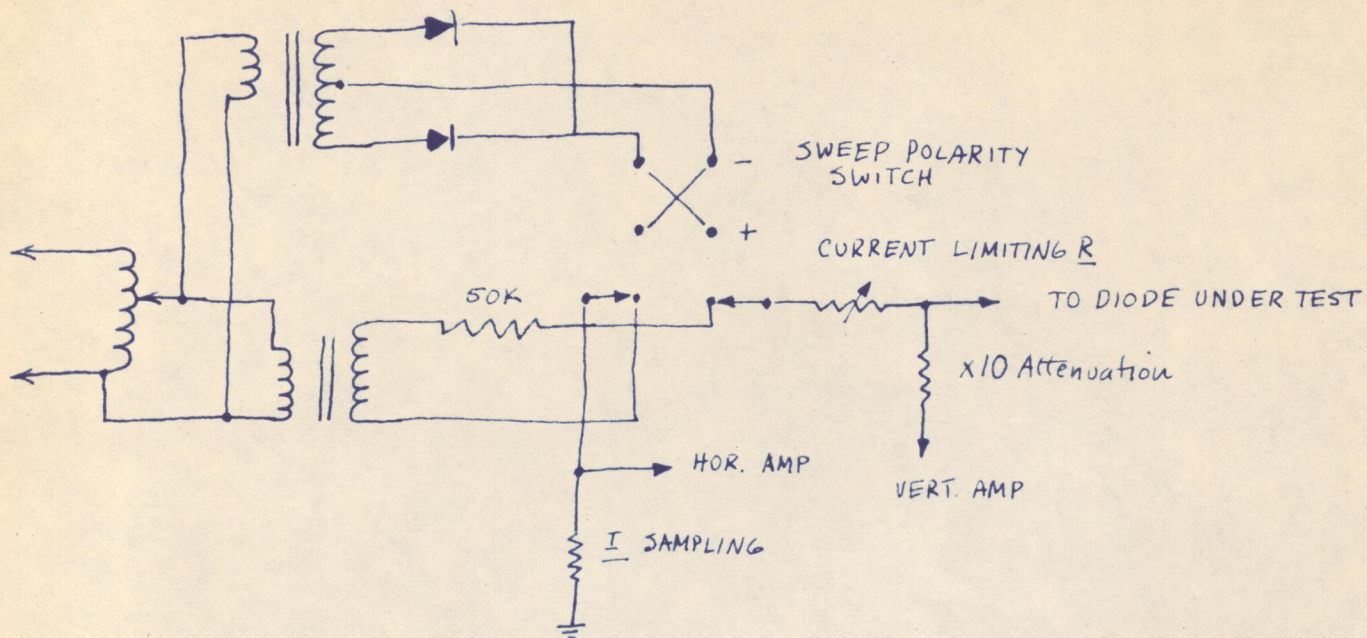 -
SWEEP POLARITY
SWITCH
+
CURRENT LIMITING R
50K
TO DIODE UNDER TEST
x10 Attenuation
HOR. AMP
VERT. AMP
I SAMPLING